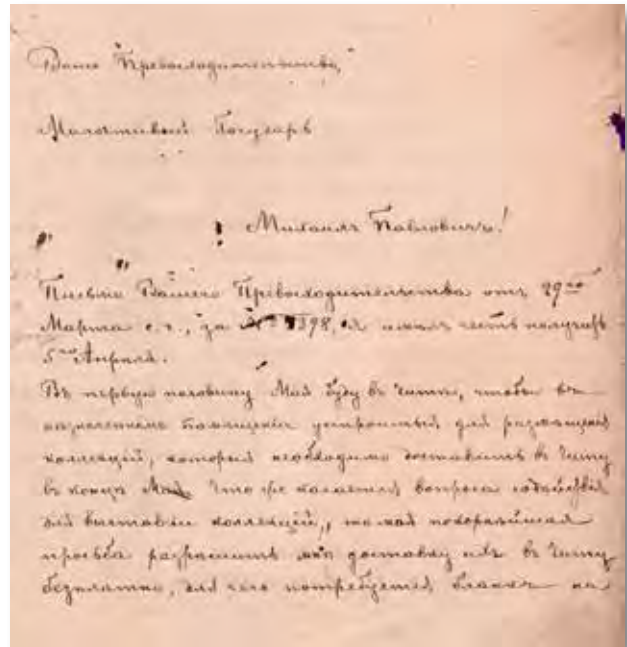 Ваше Превосходительство,
Милостивый Государь
Михаилъ Павловичъ!
Письмо Вашего Превосходительства отъ 29го
Марта с. г., за № 1398, я имѣлъ честь получить
5го Апрѣля.
Въ первую половину Мая буду въ Читѣ, чтобы въ
назначенномъ помѣщеніи устроиться для размѣщенія
коллекцій, которыя необходимо доставить въ Читу
въ концѣ Мая. Что же касается вопроса содѣйствія
для выставки коллекцій, то моя покорнѣйшая
просьба разрѣшить мнѣ доставку ихъ въ Читу
безплатно, для чего потребуется бланкъ на